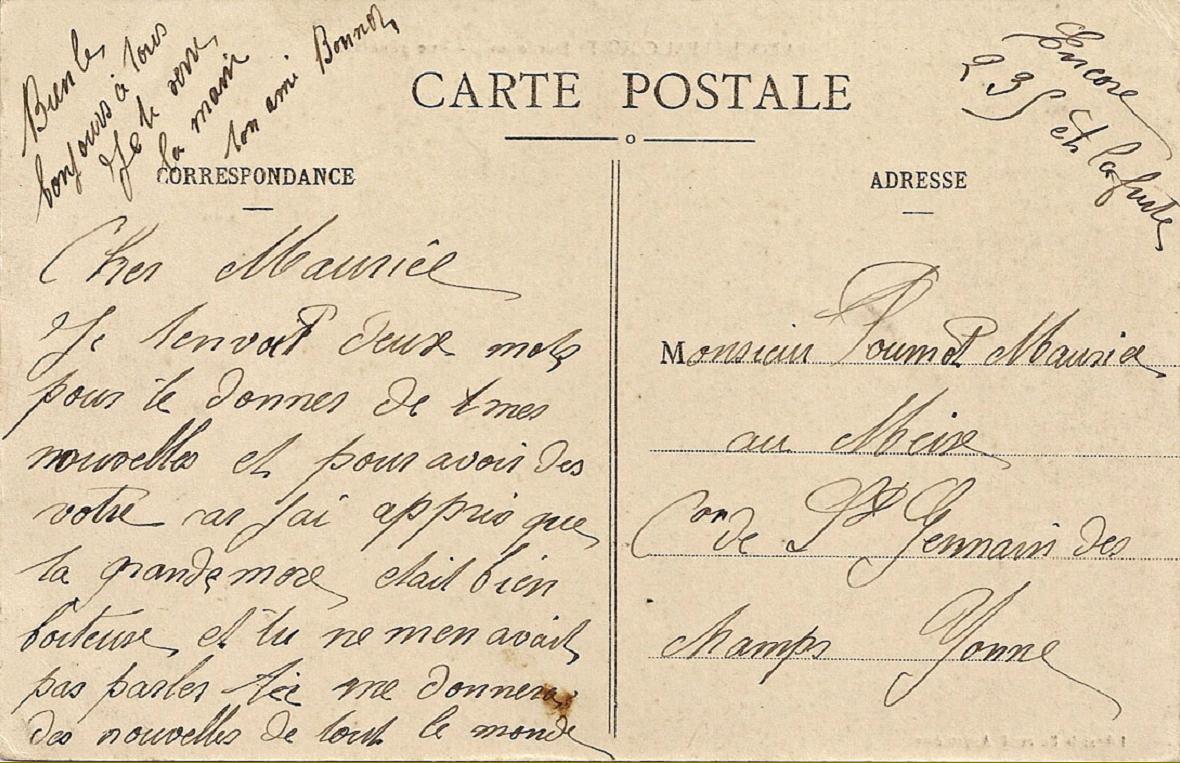 CARTE POSTALE
CORRESPONDANCE
Cher Maurice
Je tenvoit deux mots
pour te donner de tmes
nouvelles et pour avoir des
votre car jai appris que
ta grandemere etait bien
boiteuse et tu ne men avait
pas parler me donnera
des nouvelles de tout le monde
Bien les
bonjours à tous
Je te serre
la main
ton ami Bonnot
Encore
235 et la fuite
ADRESSE
Monsieur Maurice
au Meix
Con de St Germain des
champs Yonne